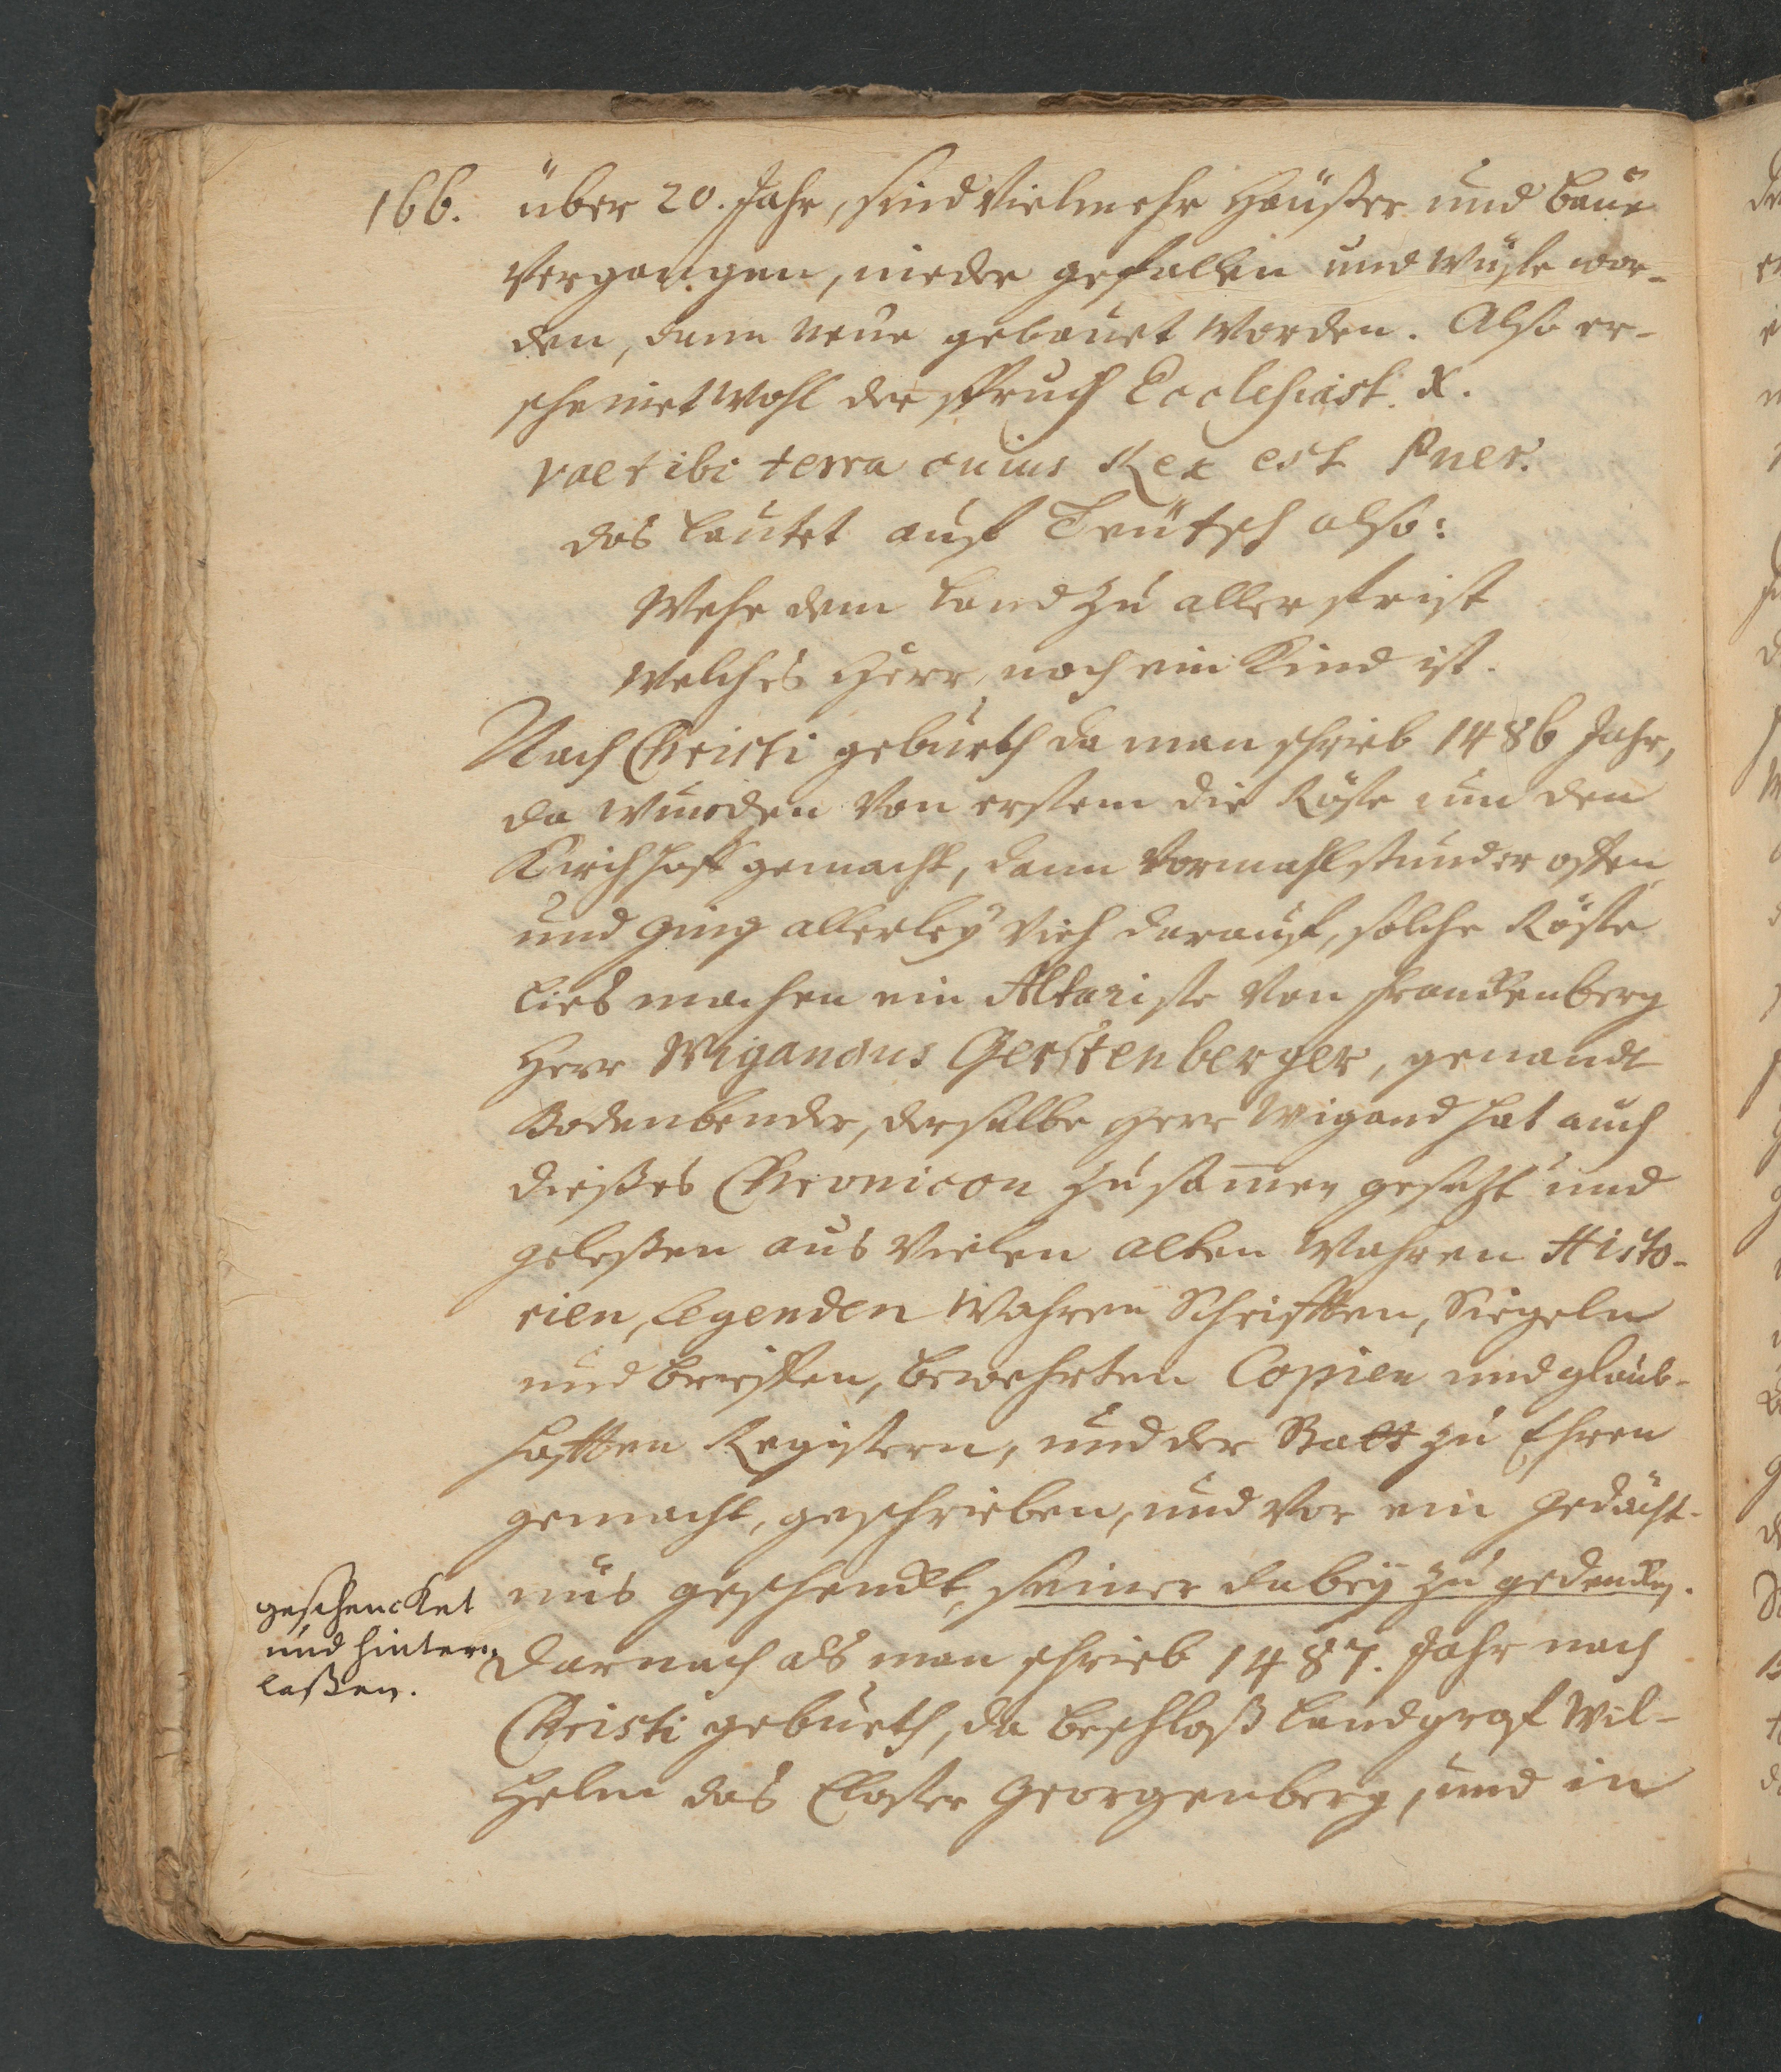 166. über 20. Jahr, sind Vielmehr Häußer und baue
Vergangen, nieder gefallen und Wüste wor-
den, dann neue gebauet Worden. Also er-
scheinet Wohl der spruch Ecclesiast. X.
vae tibi terra cuius Rex est Puer.
das lautet auf Teütsch also:
Wehe dem land zu aller frist
Welches Herr, noch ein Kind ist.
Nach Christi geburth da man schrieb 1486 Jahr,
da wurden Von erstem die Röste um den
Kirchhoff gemacht, dann Vormahl stund er offen
und ging allerley Vieh darauf, solche Röste
lies machen ein Altariste Von franckenberg
Herr Wigandus Gerstenberger, genandt
Bodenbender, derselbe Herr Wigand hat auch
dießes Chronicon zusamen gesetzt und
geleßen aus Vielen alten Wahren Histo-
rien, legenden Wahren Schrifften, Siegeln
und brieffen, bewehrten Copien und glaub-
hafften Registern, und der Statt zu Ehren
gemacht, geschrieben, und Vor ein Gedächt-
nüs geschenckt, seiner dabey zu gedencken.
geschencket
und hinter-
laßen.
Darnach als man schrieb 1487. Jahr nach
Christi geburth, da beschloß landgraf Wil-
helm das Closter Georgenberg, und in